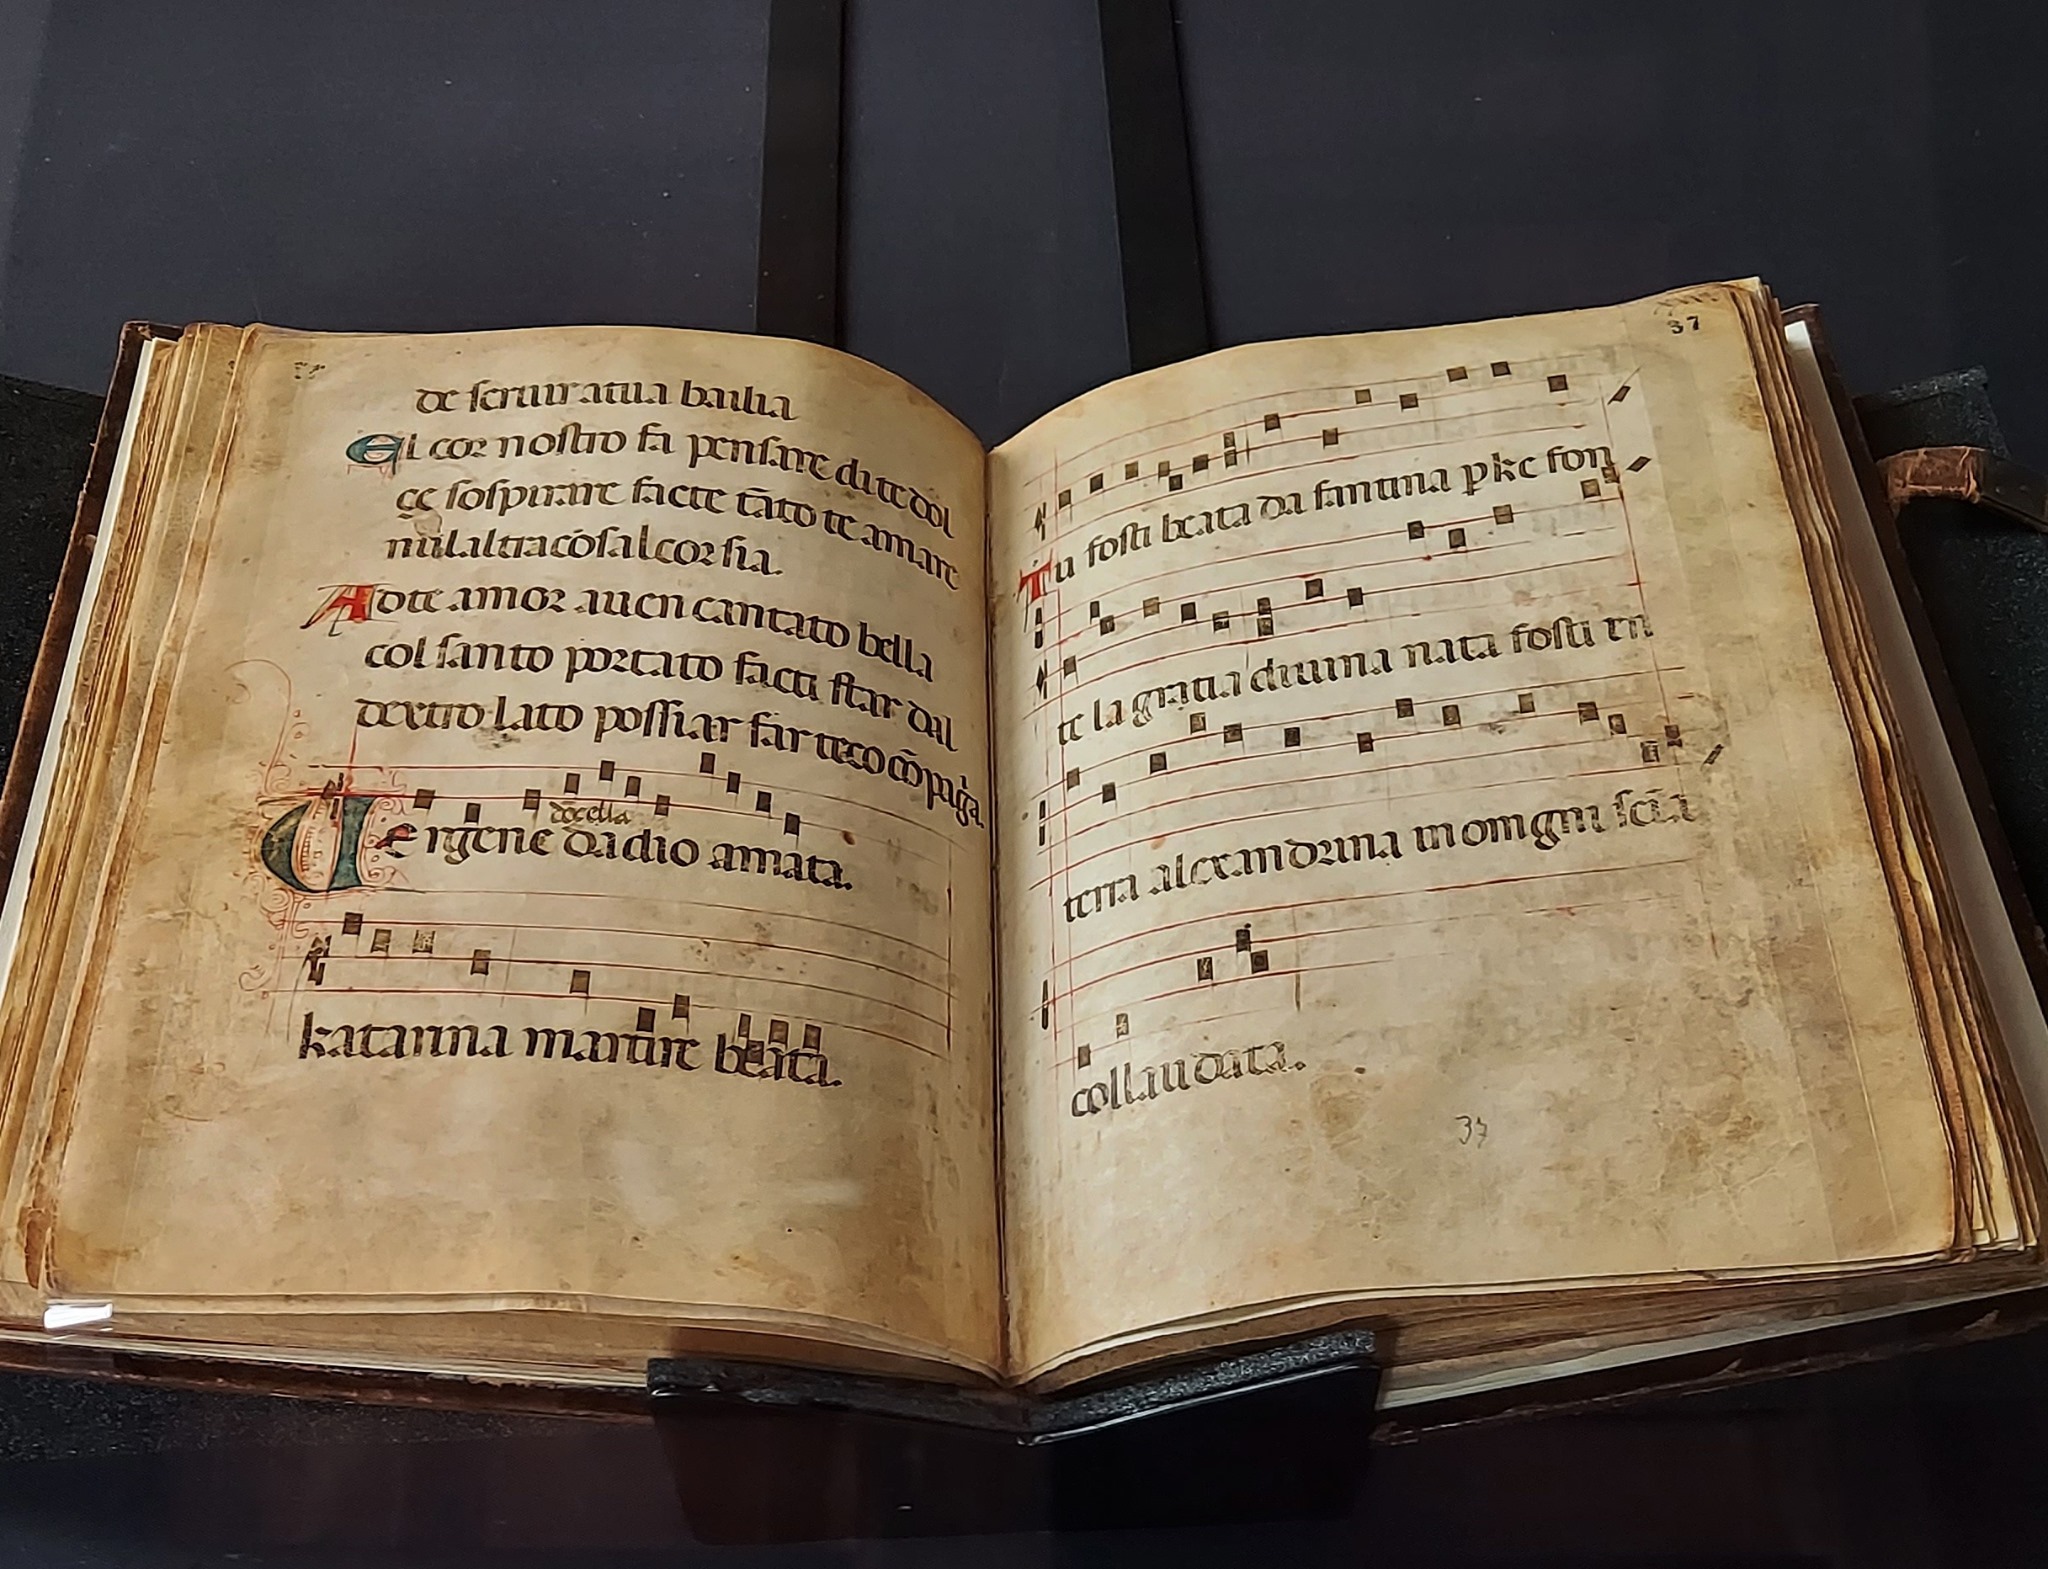 de seruir atua bailia
El cor nostro fa pensare di te dol
çe sospirare facte tāto te amare
nulaltra cōsa lcor sia.
Ad te amor auen cantato bella
col santo portato facti star dal
dextro lato possiar far teco cōpagīa.
dōçella
Vergene da dio amata.
katarina martire beata.
37
Tu fosti beata da fantina p̄ke fon
te la gratia diuina nata fosti en
terra alexandrina in omgni sciā
collaudata.
37